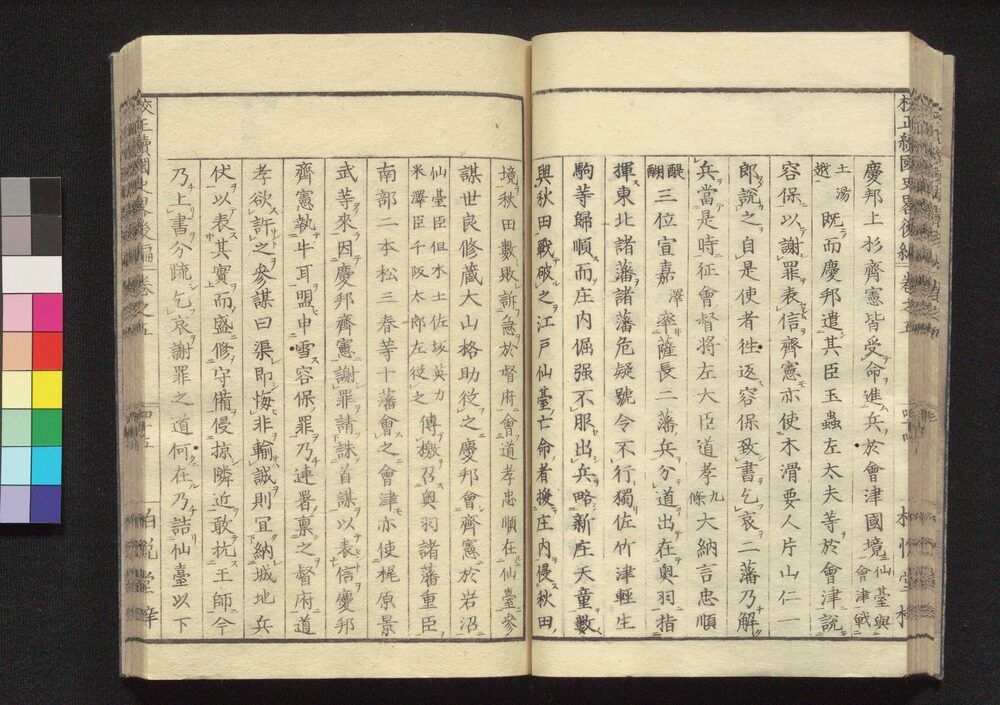 慶邦上杉齊憲皆受命進兵於會津國境仙臺與會津戰
土湯越既而慶邦遣其臣玉蟲左太夫等於會津說
容保以謝罪表信齊憲亦使木滑要人片山仁一
郎說之自是使者徃返容保致書乞哀二藩乃解
兵當是時征會督將左大臣道孝九條大納言忠順
醍醐三位宣嘉澤率薩長二藩兵分道出在奥羽指
揮東北諸藩諸藩危疑號令不行獨佐竹津輕生
駒等歸順而庄内倔强不服出兵略新庄天童數
與秋田戰破之江戸仙臺亡命者援庄内侵秋田
境秋田數敗訴急於督府會道孝忠順在仙臺參
謀世良修藏大山格助從之慶邦會齊憲於岩沼
仙臺臣但木土佐坂英力米澤臣千阪太郎左從之傳檄召奥羽諸藩重臣
南部二本松三春等十藩會之會津亦使梶原景
武等來因慶邦齊憲謝罪請誅首謀以表信慶邦
齊憲執牛耳盟申雪容保罪乃連署禀之督府道
孝欲許之參謀曰渠即悔非輸誠則冝納城地兵
伏以表其實而盛修守備侵掠隣近敢抗王師今
乃上書分疏乞哀謝罪之道何在乃詰仙臺以下
校正續國史畧後編 卷之五
四十五